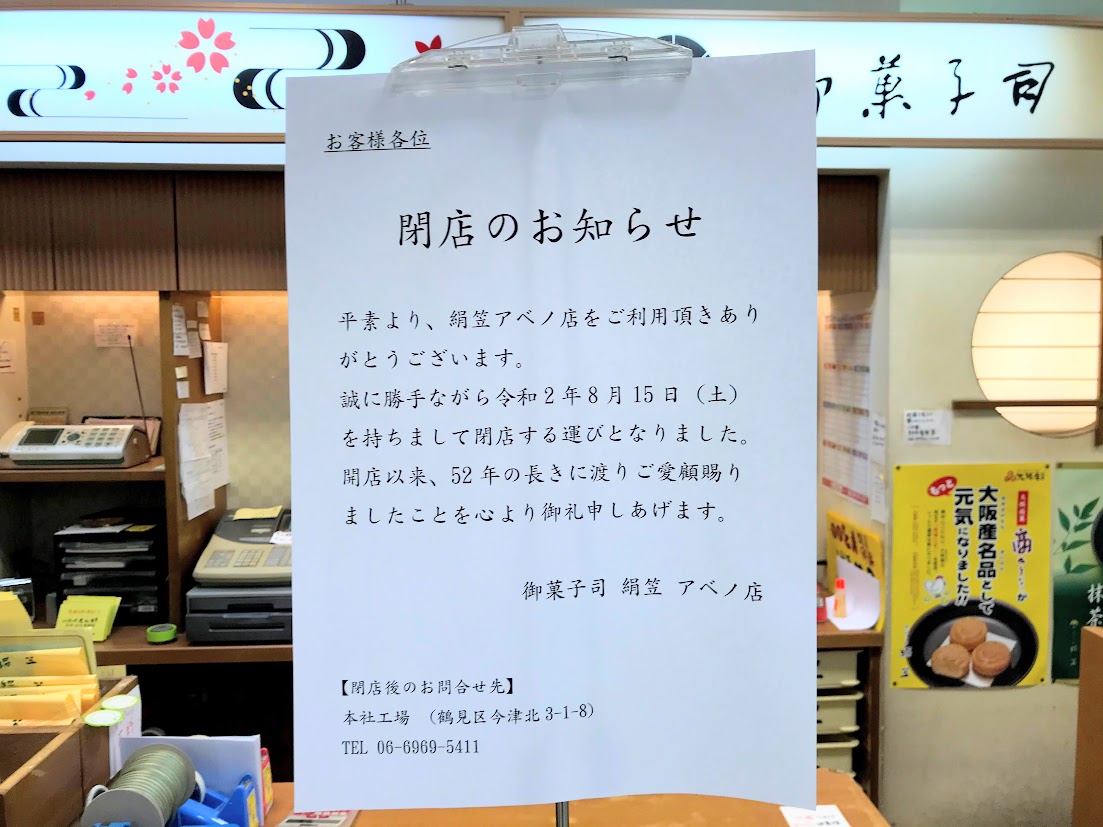 菓子司
お客様各位
閉店のお知らせ
平素より、絹笠アベノ店をご利用頂きあり
がとうございます。
誠に勝手ながら令和2年8月15日（土）
を持ちまして閉店する運びとなりました。
開店以来、52年の長きに渡りご愛顧賜り
ましたことを心より御礼申しあげます。
御菓子司 絹笠 アベノ店
【閉店後のお問合せ先】
本社工場 （鶴見区今津北3-1-8）
TEL 06-6969-5411
もっと
大阪産名品として
元気になりました!!
抹茶